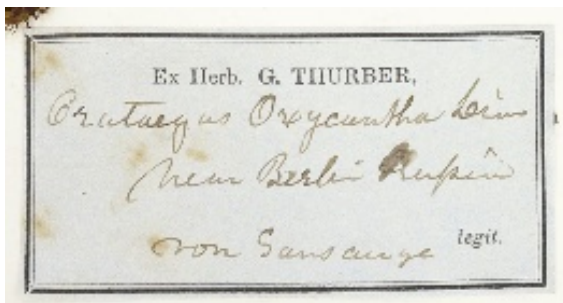 Ex Herb. G. THURBER,
Crataegus Oxycantha Linn
near Berlin
von Sansauge legit.